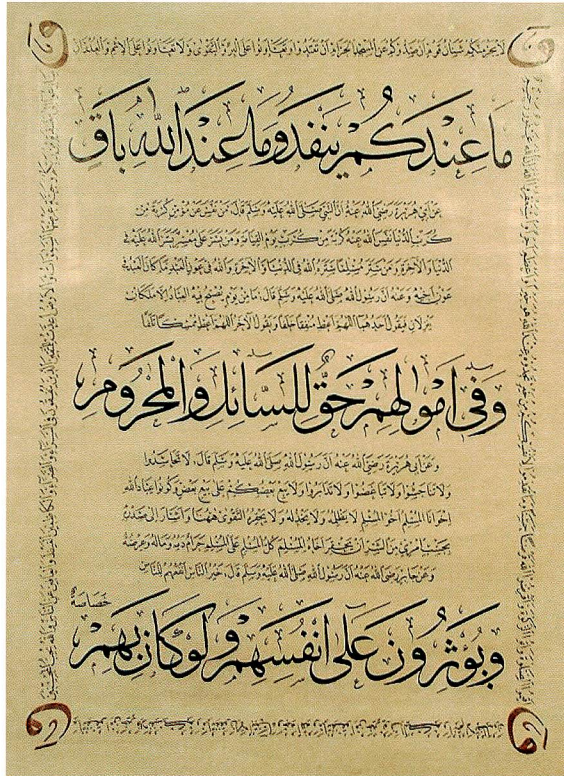 لا يجرمنكم شنآن قوم ان صدوكم عن المسجد الحرام ان تعتدوا وتعاونوا على البر والتقوى ولا تعاونوا على الاثم والعدوان
مَا عِنْدَكُمْ يَنْفَدُ وَمَا عِنْدَ اللّٰهِ بَاقٍ
عن ابي هريرة رضي الله عنه ان النبي صلى الله عليه وسلم قال، من نفس عن مؤمن كربة من
كرب الدنيا نفس الله عنه كربة من كرب يوم القيامة ومن يسر على معسر يسر الله عليه في
الدنيا والآخرة ومن ستر مسلما ستره الله في الدنيا والآخرة والله في عون العبد ما كان العبد في
عون اخيه وعنه ان رسول الله صلى الله عليه وسلم قال، ما من يوم يصبح فيه العباد الا ملكان
ينزلان فيقول احدهما اللهم اعط منفقا خلفا ويقول الآخر اللهم اعط ممسكا تلفا
وَفِي اَمْوَالِهِمْ حَقٌّ لِلسَّائِلِ وَالْمَحْرُومِ
وعن ابي هريرة رضي الله عنه ان رسول الله صلى الله عليه وسلم قال، لا تحاسدوا
ولا تناجشوا ولا تباغضوا ولا تدابروا ولا يبع بعضكم على بيع بعض وكونوا عباد الله
اخوانا المسلم اخو المسلم لا يظلمه ولا يخذله ولا يحقره التقوى ههنا واشار الى صدره
بحسب امرئ من الشر ان يحقر اخاه المسلم كل المسلم على المسلم حرام دمه وماله وعرضه
وعن جابر رضي الله عنه ان رسول الله صلى الله عليه وسلم قال، خير الناس انفعهم للناس
وَيُؤْثِرُونَ عَلٰى اَنْفُسِهِمْ وَلَوْ كَانَ بِهِمْ خَصَاصَةٌ